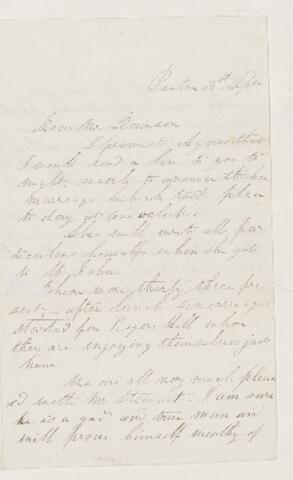 Pictou 15th Sept
Dear Mr. Dawson
I promised Agnes that
I would send a line to you to
night, merely to announce that her
marriage which took place
to day at One oclock.
She will write all par
ticulars herself when she gets
to St. John.
There were thirty three pre
sent, after lunch carriages
started for Rogers Hill where
they are enjoying themselves just
now
We are all very much pleas
ed with Mr Stewart. I am sure
he is a good and true man and
will prove himself worthy of